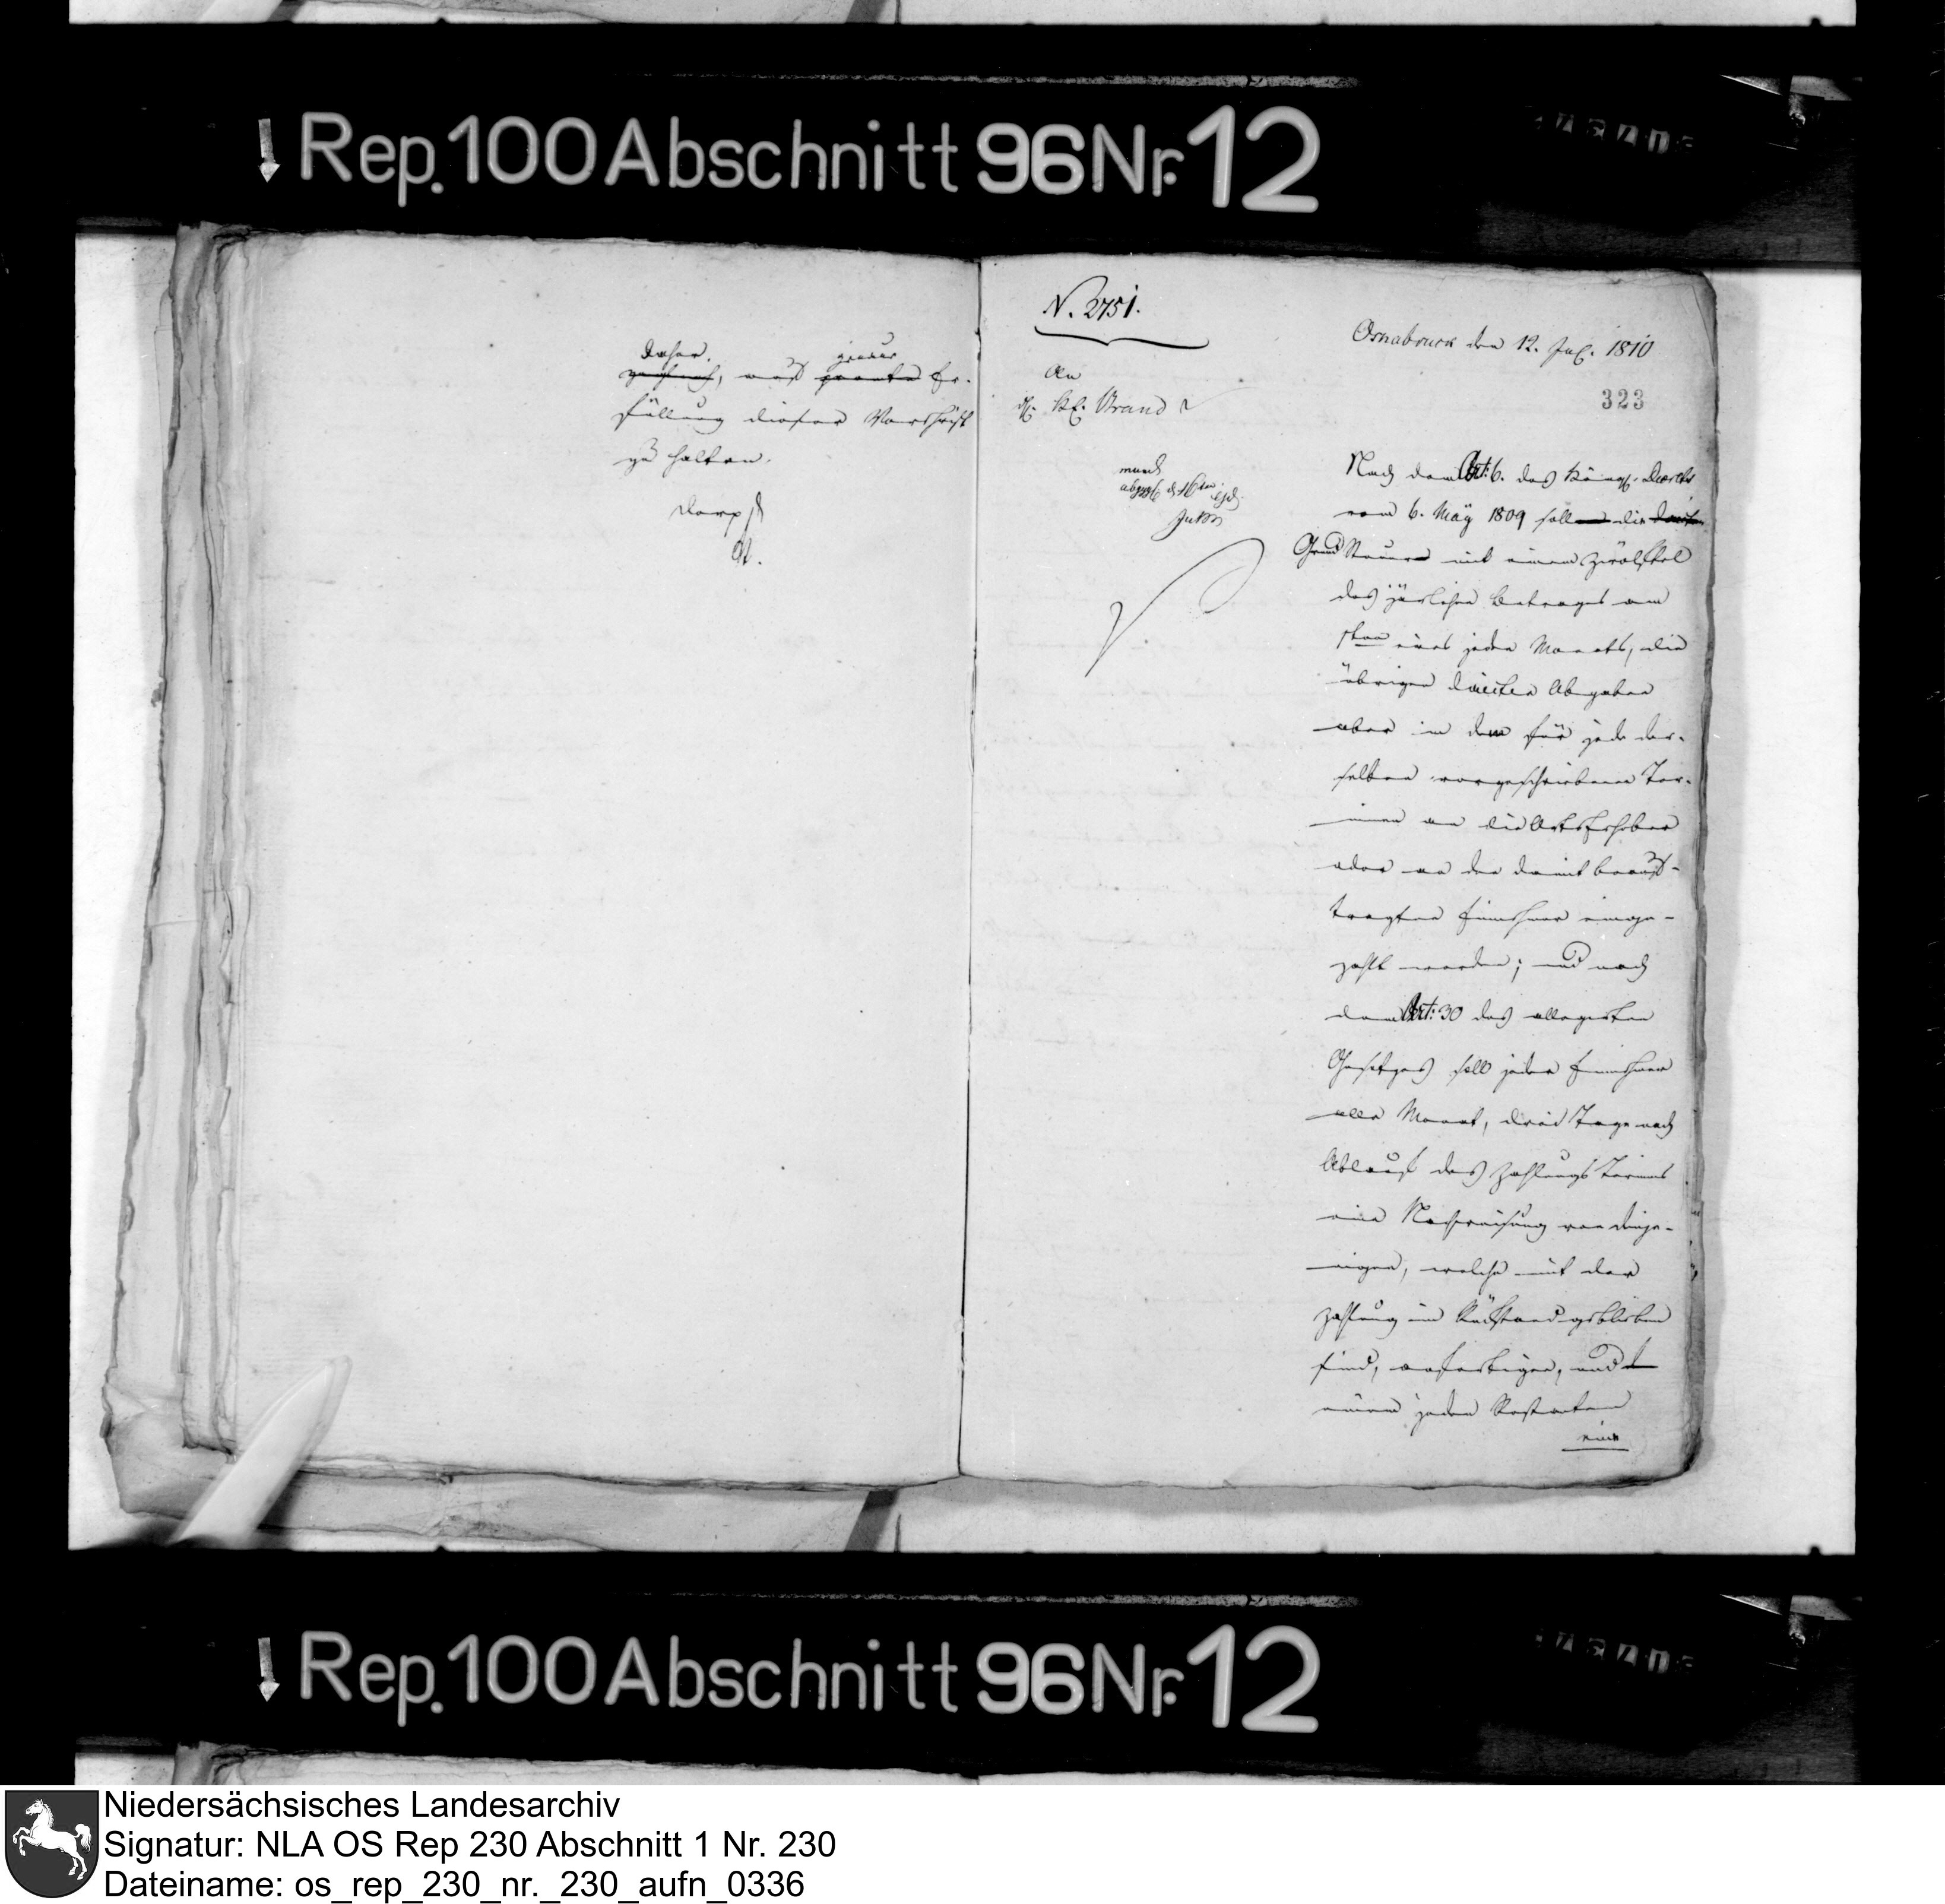 Rep. 100 Abschnitt 96 Nr. 12
daher, genauer
auf prompte Er-
füllung dieser Vorschrift
zu halten.
N. 2751.
Osnabruck den 12. Jul. 1810
323
An
Brand
mund
abges. d. 16ten ejd.
Nach dem Art: 6. des Königl. Decrets
vom 6. May 1809 soll die
Grund Steuer mit einem Zwölftel
des järlichen Betrages am
1sten eines jeden Monats, die
übrigen directen Abgaben
aber in dem für jede der-
selben vorgeschriebenen Ter-
minen an die Ortserheber
oder an den damit beauf-
tragten Einnehmer einge-
zahlt werden; und nach
dem Art: 30 des allegirten
Gesetzes soll jeder Einnehmer
alle Monat, drei Tage nach
Ablauf des Zahlungs Termins
eine Nachweisung von dieje-
nigen, welche mit der
Zahlung im Rückstand geblieben
sind, anfertigen, und
einem jeden Restanten
eine
Rep. 100 Abschnitt 96 Nr. 12
Niedersächsisches Landesarchiv
Signatur: NLA OS Rep 230 Abschnitt 1 Nr. 230
Dateiname: os_rep_230_nr._230_aufn_0336